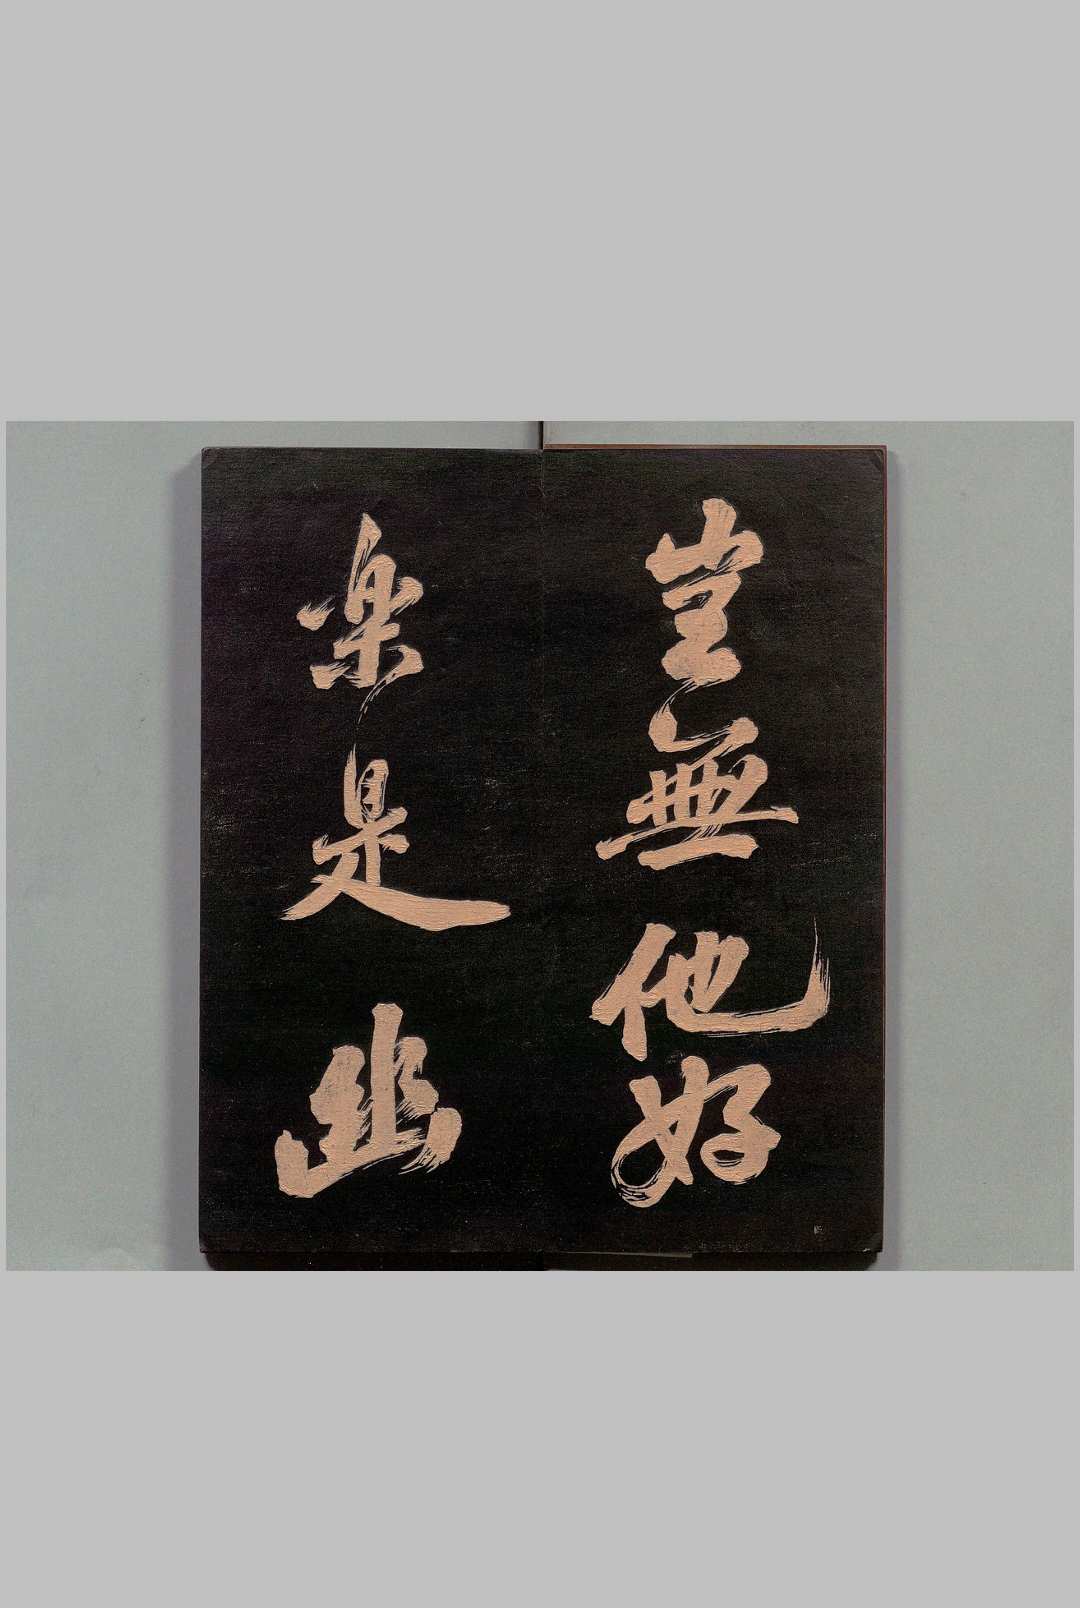 豈無他好
楽是幽